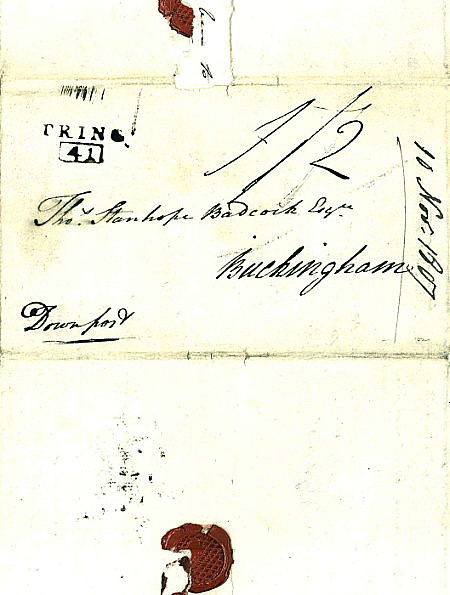 TRING
41
1/2
Thos. Stanhope Badcock Esqre
Buckingham
Down post
10 Nov: 1807